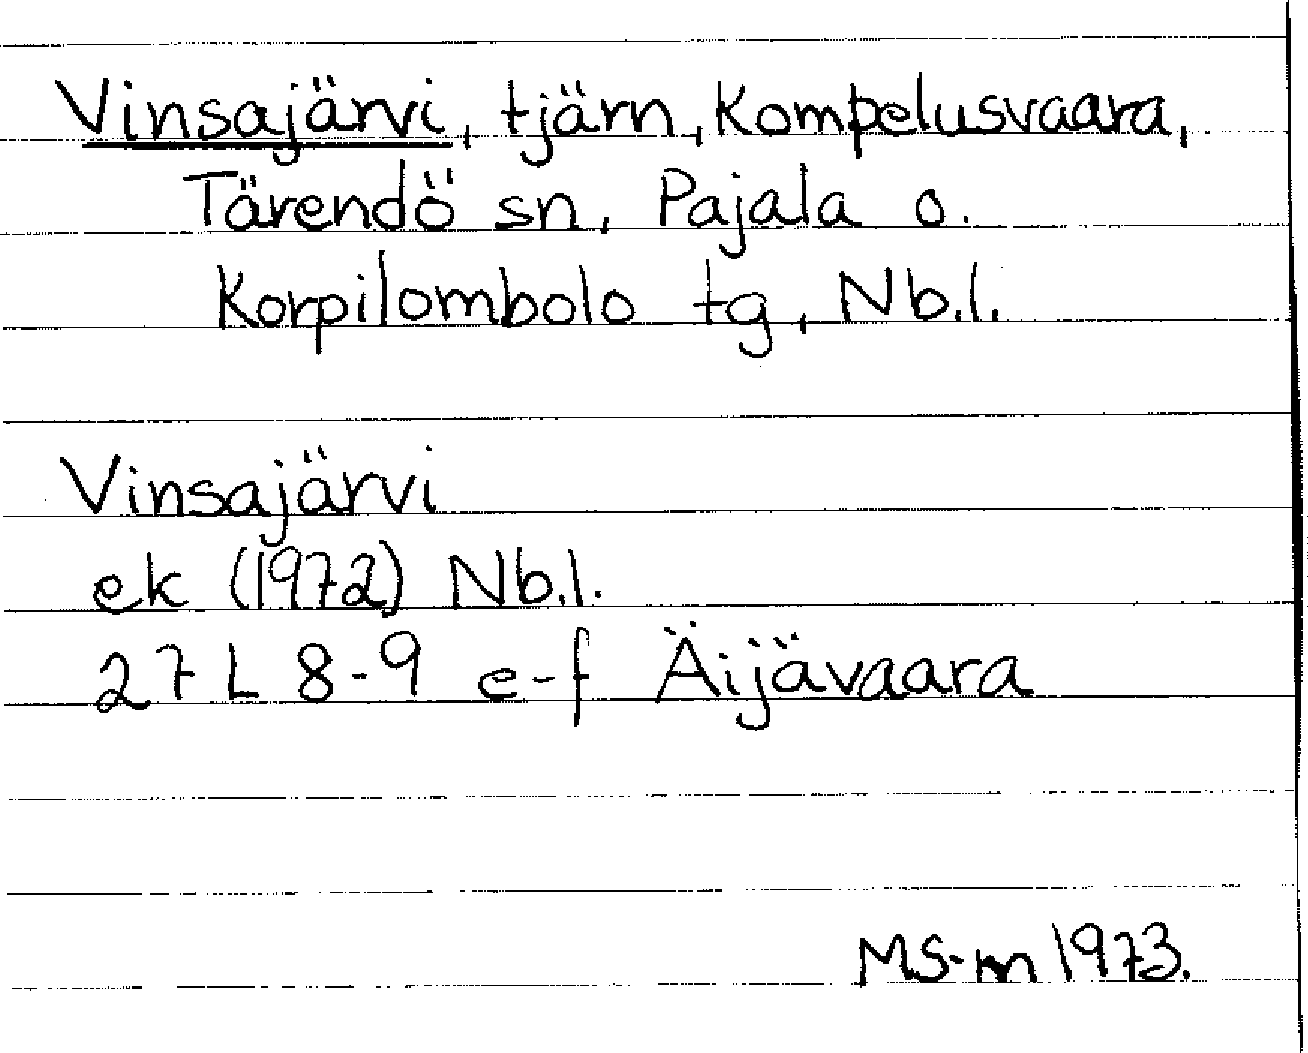 Vinsajärvi, tjärn, Kompelusvaara,
Tärendö sn, Pajala o.
Korpilombolo tg, Nb.l.
Vinsajärvi
ek (1972) Nb.l.
27 L 8-9 e-f Äijävaara
MS-m 1973.